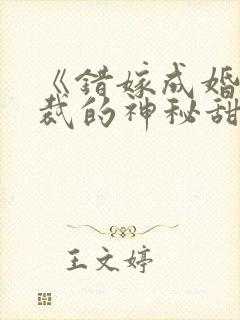 《错嫁成婚
裁的神秘甜
王文婷